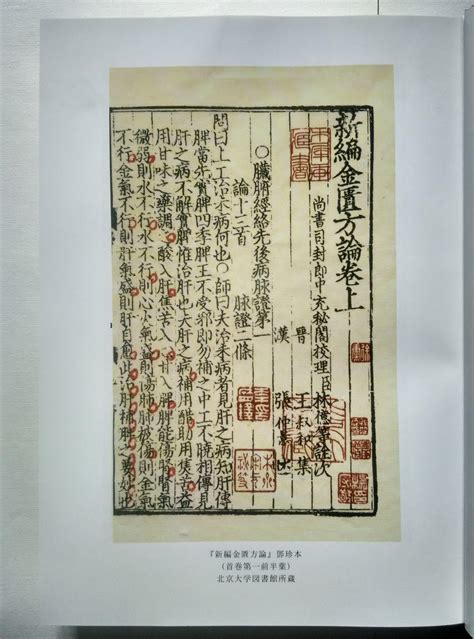 新編金匱方論卷上
尚書司封郎中充秘閣校理臣林億等詮次
晉 王叔和 集
漢 張仲景 述
〇臟腑經絡先後病脉證第一
論十三首 脉證二條
問曰上工治未病何也〇師曰夫治未病者見肝之病知肝傳
脾當先實脾四季脾王不受邪即勿補之中工不曉相傳見
肝之病不解實脾惟治肝也夫肝之病補用酸助用焦苦益
用甘味之藥調之酸入肝焦苦入心甘入脾脾能傷腎腎氣
微弱則水不行水不行則心火氣盛則傷肺肺被傷則金氣
不行金氣不行則肝氣盛則肝自愈此治肝補脾之要妙也
『新編金匱方論』鄧珍本
(首卷第一前半葉)
北京大学図書館所蔵